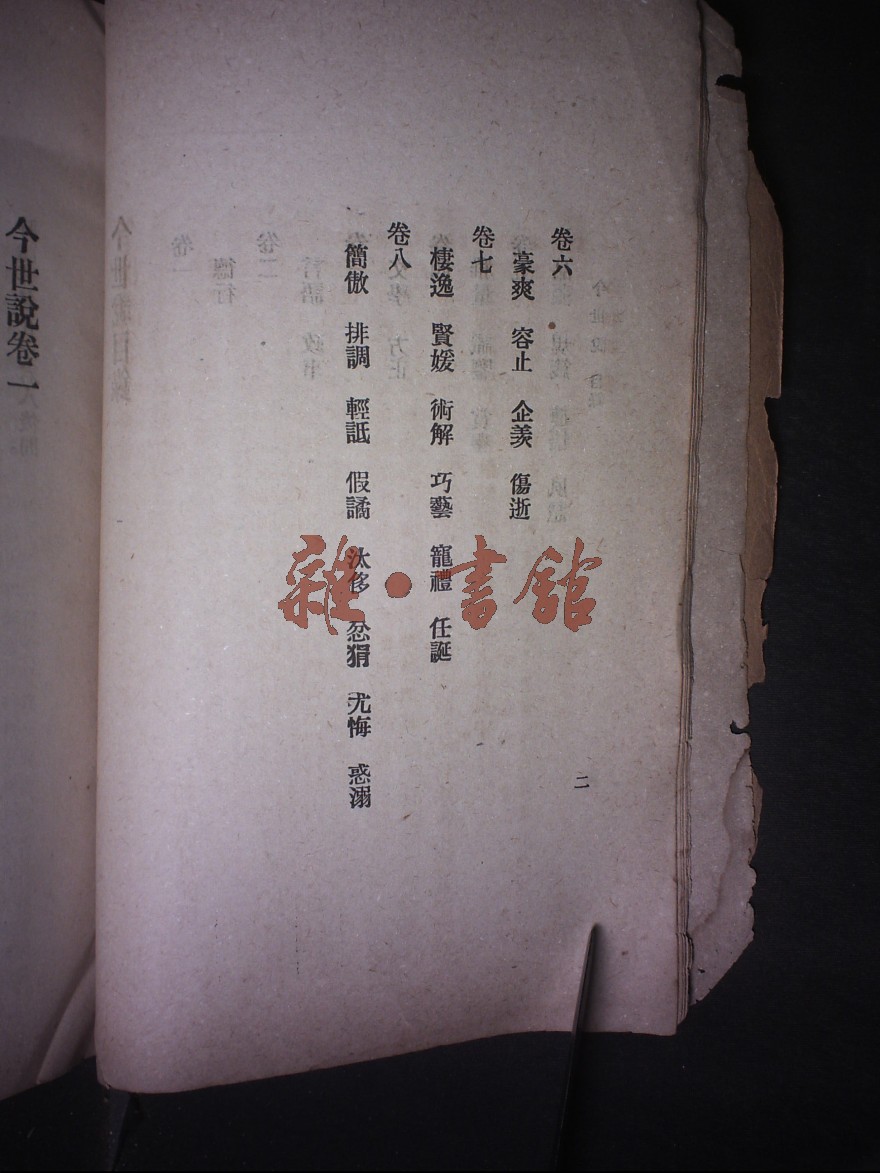 卷六
豪爽 容止 企羨 傷逝
卷七
棲逸 賢媛 術解 巧藝 寵禮 任誕
卷八
簡傲 排調 輕詆 假譎 汰侈 忿狷 尤悔 惑溺
二
今世說卷一
雜·書館